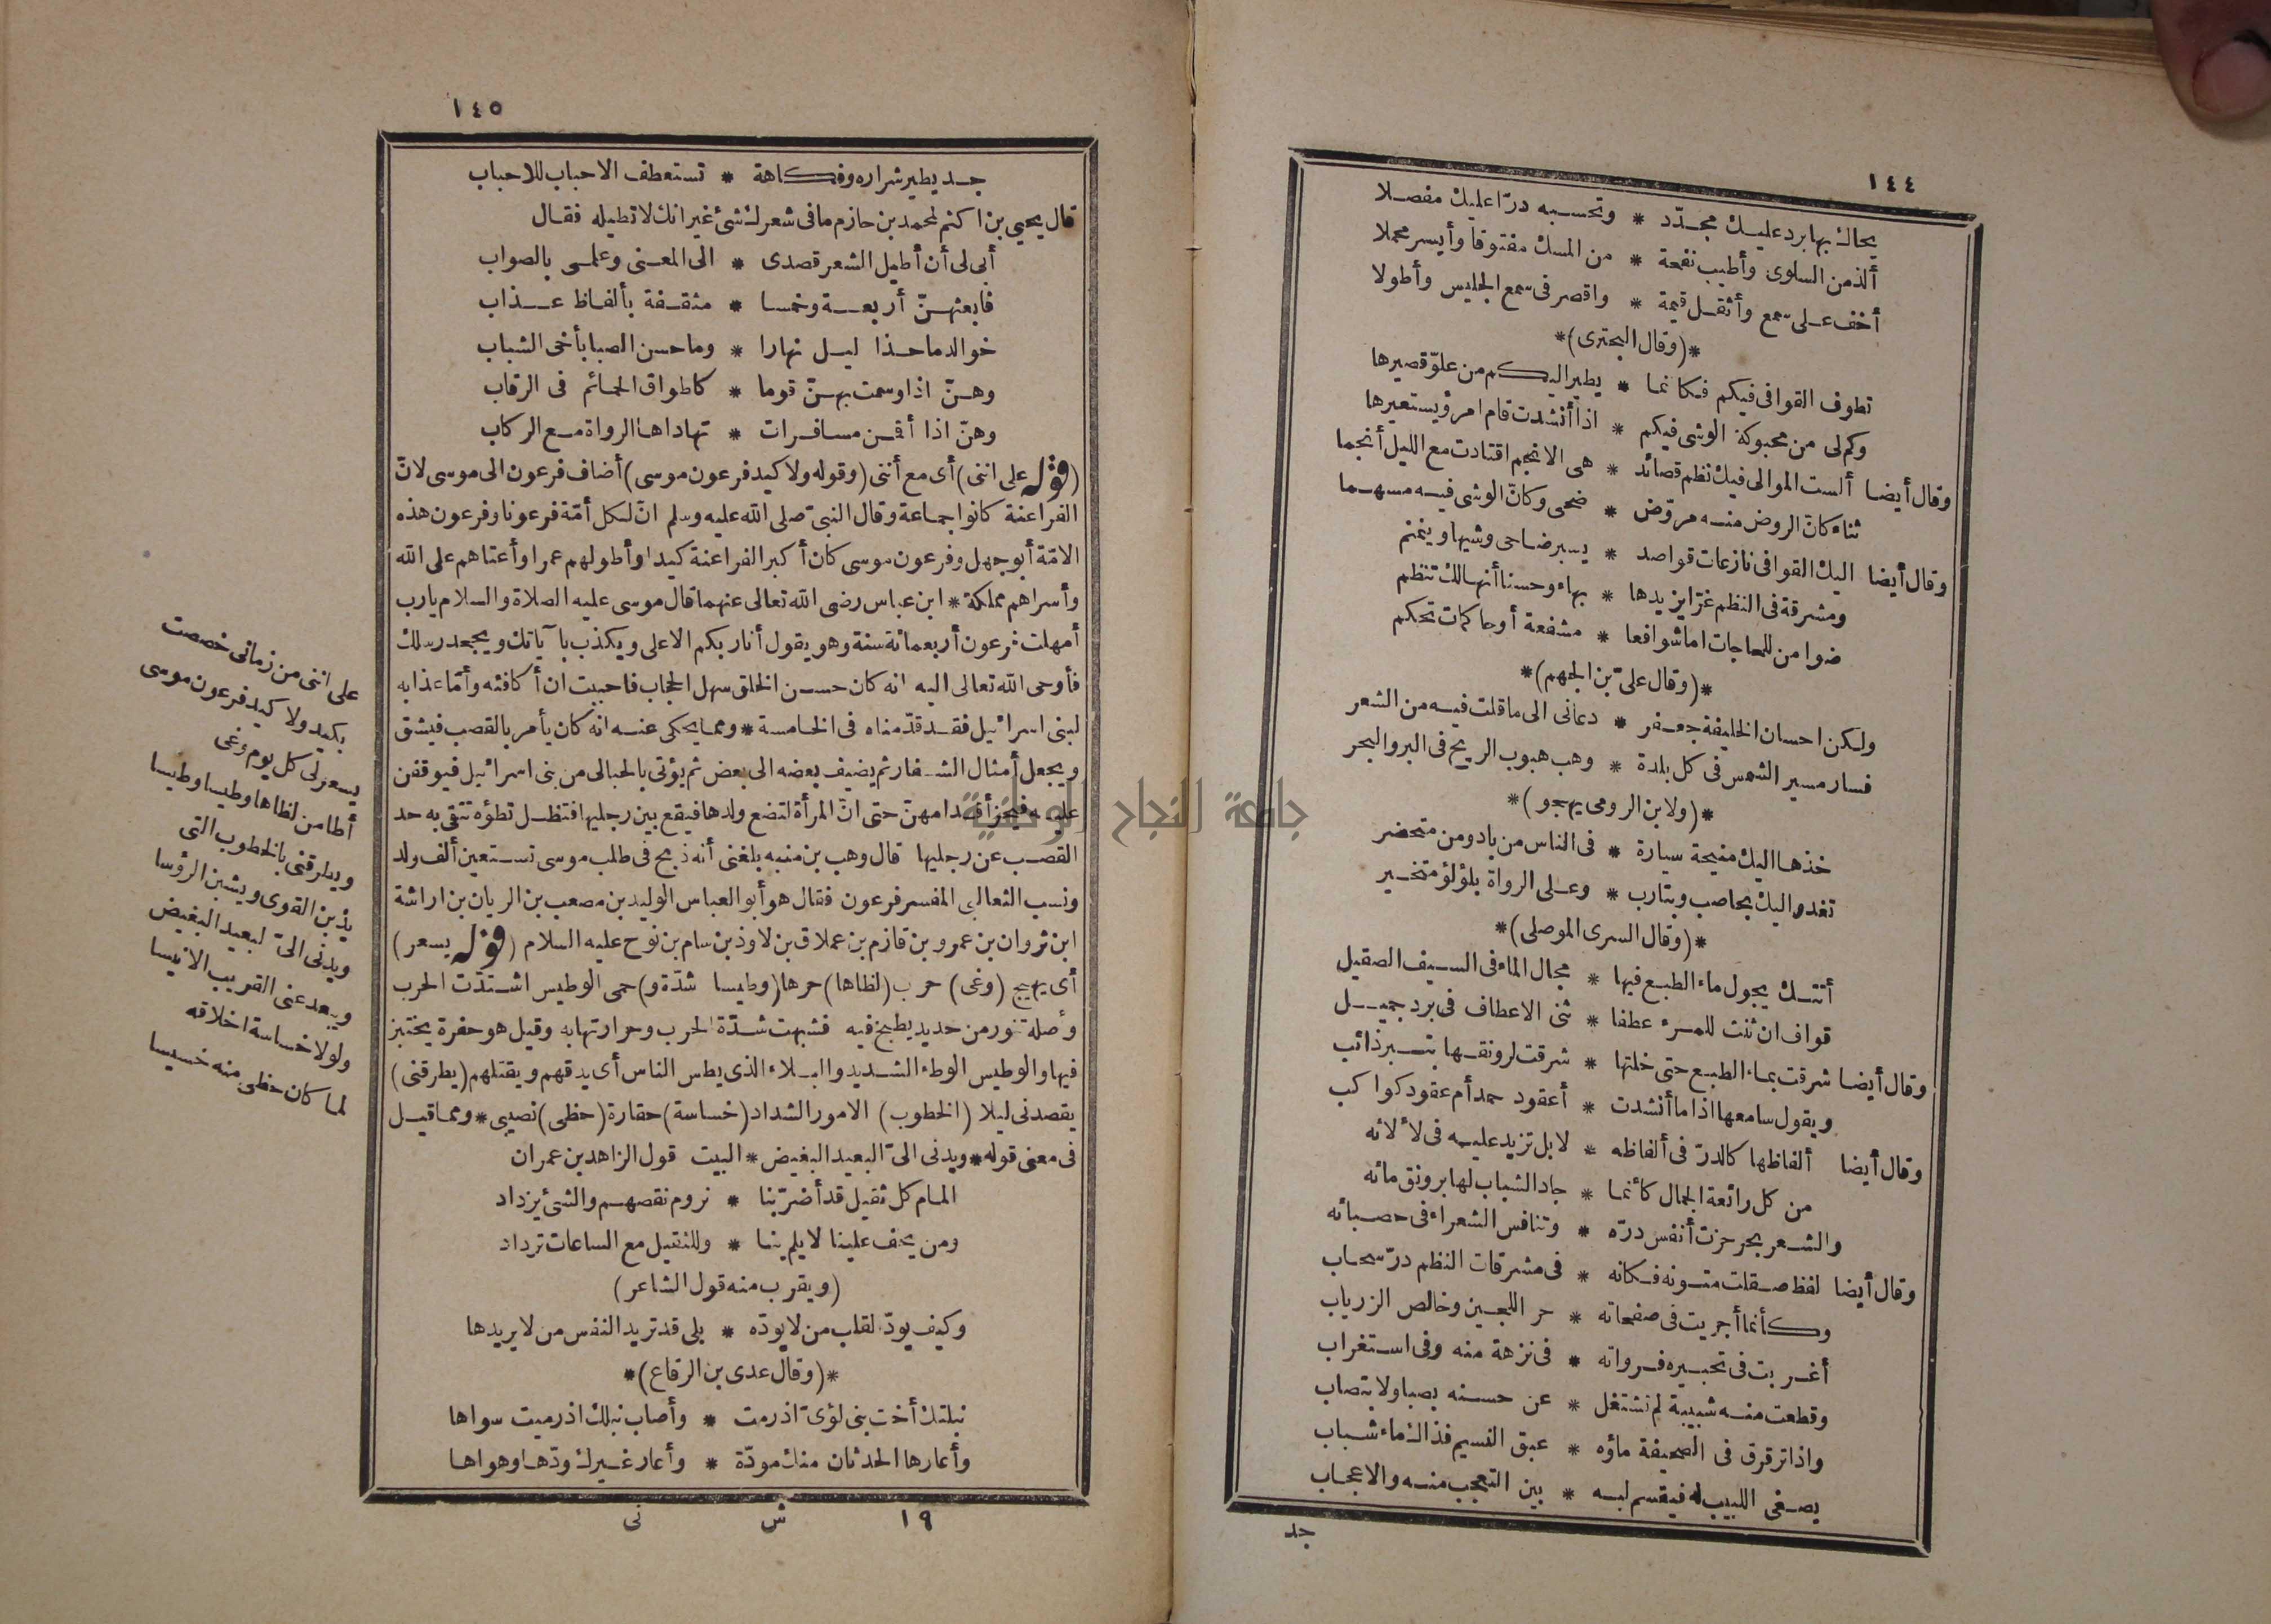 ١٤٤
يحاك بها برد عليك مجدد * وتحسبه درّا عليك مفصلا
ألذ من السلوى وأطيب نفحة * من المسك مفتوقا وأيسر محملا
أخف على سمع وأثقل قيمة * واقصر فى سمع الجليس وأطولا
*(وقال البحترى)*
تطوف القوافى فيكم فكانما * يطير اليكم من علوّ قصيرها
وكم لى من محبوكة الوشى فيكم * اذا أنشدت قام امرؤ يستعيرها
وقال أيضا ألست الموالى فيك نظم قصائد * هى الانجم اقتادت مع الليل أنجما
ثناء كانّ الروض منه مروّض * ضحى وكانّ الوشى فيه مسهما
وقال أيضا اليك القوافى نازعات قواصد * يسير ضاحى وشيها وينمنم
ومشرقة فى النظم غرّا يزيدها * بهاء وحسنا أنها لك تنظم
ضوامن للحاجات اما شوافعا * مشفعة أو حاكمات تحكم
*(وقال علىّ بن الجهم)*
ولكن احسان الخليفة جعفر * دعانى الى ما قلت فيه من الشعر
فسار مسير الشمس فى كل بلدة * وهب هبوب الريح فى البر والبحر
*(ولابن الرومى يهجو)*
خذها اليك منيحة سيارة * فى الناس من باد ومن متحضر
تغدو اليك بحاصب وبتارب * وعلى الرواة بلؤلؤ متخير
*(وقال السرى الموصلى)*
أتتك يجول ماء الطبع فيها * مجال الماء فى السيف الصقيل
قواف ان ثنت للمرء عطفا * ثنى الاعطاف فى برد جميل
وقال أيضا شرقت بماء الطبع حتى خلتها * شرقت لرونقها بتبر ذائب
ويقول سامعها اذا ما أنشدت * أعقود حمد أم عقود كواكب
وقال أيضا ألفاظها كالدرّ فى ألفاظه * لا بل تزيد عليه فى لألائه
من كل رائعة الجمال كأنما * جاد الشباب لها برونق مائه
والشعر بحر حزت أنفس درّه * وتنافس الشعراء فى حصبائه
وقال أيضا لفظ صقلت متونه فكانه * فى مشرقات النظم درّ سحاب
وكأنما أجريت فى صفحاته * حر اللجين وخالص الزرياب
أغربت فى تحبيره فرواته * فى نزهة منه وفى استغراب
وقطعت منه شبيبة لم تشتغل * عن حسنه بصبا ولا بتصاب
واذا ترقرق فى الصحيفة ماؤه * عبق النسيم فذاك ماء شباب
يصغى اللبيب له فيقسم لبه * بين التعجب منه والاعجاب
جد
١٤٥
جد يطير شراره وفكاهة * تستعطف الاحباب للاحباب
قال يحيى بن اكثم لمحمد بن حازم ما فى شعرك شئ غير انك لا تطيله فقال
أبى لى أن أطيل الشعر قصدى * الى المعنى وعلمى بالصواب
فابعثهنّ أربعة وخمسا * مثقفة بألفاظ عذاب
خوالد ما حذا ليل نهارا * وما حسن الصبا بأخى الشباب
وهنّ اذا وسمت بهنّ قوما * كاطواق الحمائم فى الرقاب
وهنّ اذا أقمن مسافرات * تهاداها الرواة مع الركاب
(قوله على اننى) أى مع أننى (وقوله ولا كيد فرعون موسى) أضاف فرعون الى موسى لانّ
الفراعنة كانوا جماعة وقال النبىّ صلى الله عليه وسلم انّ لكل أمّة فرعونا وفرعون هذه
الامّة أبو جهل وفرعون موسى كان أكبر الفراعنة كيدا وأطولهم عمرا وأعتاهم على الله
وأسراهم مملكة * ابن عباس رضى الله تعالى عنهما قال موسى عليه الصلاة والسلام يارب
أمهلت فرعون أربعمائة سنة وهو يقول أنا ربكم الاعلى ويكذب بآياتك ويجحد رسلك
فأوحى الله تعالى اليه انه كان حسن الخلق سهل الحجاب فاحببت ان أكافئه وأمّا عذابه
لبنى اسرائيل فقد قدّمناه فى الخامسة * ومما يحكى عنه انه كان يأمر بالقصب فيشق
ويجعل أمثال الشفار ثم يضيف بعضه الى بعض ثم يؤتى بالحبالى من بنى اسرائيل فيوقفن
عليه فيحز أقدامهنّ حتى انّ المرأة لتضع ولدها فيقع بين رجليها فتظل تطؤه تتقى به حد
القصب عن رجليها قال وهب بن منبه بلغنى أنه ذبح فى طلب موسى تسعين ألف ولد
ونسب الثعالبى المفسر فرعون فقال هو أبو العباس الوليد بن مصعب بن الريان بن اراشة
ابن ثروان بن عمرو بن قازم بن عملاق بن لاوذ بن سام بن نوح عليه السلام (قوله يسعر)
أى يهيج (وغى) حرب (لظاها) حرها (وطيسا شدّة و) حمى الوطيس اشتدّت الحرب
وأصله تنور من حديد يطبخ فيه فشبهت شدّة الحرب وحرارتها به وقيل هو حفرة يختبز
فيها والوطيس الوطء الشديد والبلاء الذى يطس الناس أى يدقهم ويقتلهم (يطرقنى)
يقصدنى ليلا (الخطوب) الامور الشداد (خساسة) حقارة (حظى) نصيبى * ومما قيل
فى معنى قوله * ويدنى الىّ البعيد البغيض * البيت قول الزاهد بن عمران
المام كل ثقيل قد أضرّ بنا * نروم نقصهم والشئ يزداد
ومن يخف علينا لا يلم بنا * وللثقيل مع الساعات ترداد
(ويقرب منه قول الشاعر)
وكيف يودّ القلب من لا يودّه * بلى قد تريد النفس من لا يريدها
*(وقال عدى بن الرقاع)*
نبلتك أخت بنى لؤىّ اذ رمت * وأصاب نبلك اذ رميت سواها
وأعارها الحدثان منك مودّة * وأعار غيرك ودّها وهواها
١٩ ش نى
على اننى من زمانى خصصت
بكيد ولا كيد فرعون موسى
يسعر لى كل يوم وغى
أطا من لظاها وطيسا وطيسا
ويطرقنى بالخطوب التى
يذبن القوى ويشبن الرؤسا
ويدنى الىّ البعيد البغيض
ويبعد عنى القريب الانيسا
ولولا خساسة اخلاقه
لما كان حظى منه خسيسا
جامعة النجاح الوطنية